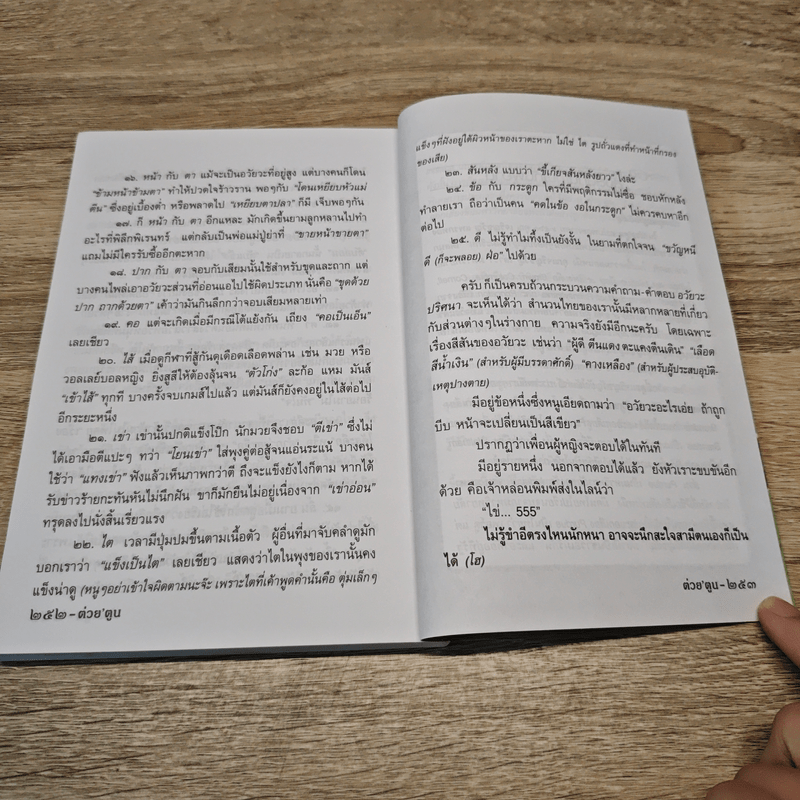 ๑๖. หน้า กับ ตา แม้จะเป็นอวัยวะที่อยู่สูง แต่บางคนก็โดน
“ข้ามหน้าข้ามตา” ทำให้ปวดใจร้าวราน พอๆกับ “โดนเหยียบหัวแม่
ตีน” ซึ่งอยู่เบื้องต่ำ หรือพลาดไป “เหยียบตาปลา” ก็มี เจ็บพอๆกัน
๑๗. ก็ หน้า กับ ตา อีกแหละ มักเกิดขึ้นยามลูกหลานไปทำ
อะไรที่พิลึกพิเรนทร์ แต่กลับเป็นพ่อแม่ปู่ย่าที่ “ขายหน้าขายตา”
แถมไม่มีใครรับซื้ออีกตะหาก
๑๘. ปาก กับ ตา จอบกับเสียมนั้นใช้สำหรับขุดและถาก แต่
บางคนไพล่เอาอวัยวะส่วนที่อ่อนแอไปใช้ผิดประเภท นั่นคือ “ขุดด้วย
ปาก ถากด้วยตา” เค้าว่ามันกินลึกกว่าจอบเสียมหลายเท่า
๑๙. คอ แต่จะเกิดเมื่อมีกรณีโต้แย้งกัน เถียง “คอเป็นเอ็น”
เลยเชียว
๒๐. ไส้ เมื่อดูกีฬาที่สู้กันดุเดือดเลือดพล่าน เช่น มวย หรือ
วอลเลย์บอลหญิง ยิ่งสูสีให้ต้องลุ้นจน “ตัวโก่ง” ละก้อ แหม มันส์
“เข้าไส้” ทุกที บางครั้งจบเกมส์ไปแล้ว แต่มันส์ก็ยังคงอยู่ในไส้ต่อไป
อีกระยะหนึ่ง
๒๑. เข่า เข่านั้นปกติแข็งโป๊ก นักมวยจึงชอบ “ตีเข่า” ซึ่งไม่
ได้เอามือตีแปะๆ ทว่า “โยนเข่า” ใส่พุงคู่ต่อสู้จนแอ่นระแน้ บางคน
ใช้ว่า “แทงเข่า” ฟังแล้วเห็นภาพกว่าตี ถึงจะแข็งยังไงก็ตาม หากได้
รับข่าวร้ายกะทันหันไม่นึกฝัน ขาก็มักยืนไม่อยู่เนื่องจาก “เข่าอ่อน”
ทรุดลงไปนั่งสิ้นเรี่ยวแรง
๒๒. ไต เวลามีปุ่มปมขึ้นตามเนื้อตัว ผู้อื่นที่มาจับคลำดูมัก
บอกเราว่า “แข็งเป็นไต” เลยเชียว แสดงว่าไตในพุงของเรานั้นคง
แข็งน่าดู (หนูๆอย่าเข้าใจผิดตามนะจ๊ะ เพราะไตที่เค้าพูดคำนั้นคือ ตุ่มเล็กๆ
๒๕๒ – ต่วย’ตูน
แข็งๆที่ฝังอยู่ใต้ผิวหน้าของเราตะหาก ไม่ใช่ ไต รูปถั่วแดงที่ทำหน้าที่กรอง
ของเสีย)
๒๓. สันหลัง แบบว่า “ขี้เกียจสันหลังยาว” ไงล่ะ
๒๔. ข้อ กับ กระดูก ใครที่มีพฤติกรรมไม่ซื่อ ชอบหักหลัง
ทำลายเรา ถือว่าเป็นคน “คดในข้อ งอในกระดูก” ไม่ควรคบหาอีก
ต่อไป
๒๕. ดี ไม่รู้ทำไมทั้งเป็นยังงั้น ในยามที่ตกใจจน “ขวัญหนี
ดี (ก็จะพลอย) ฝ่อ” ไปด้วย
ครับ ก็เป็นครบถ้วนกระบวนความคำถาม-คำตอบ อวัยวะ
ปริศนา จะเห็นได้ว่า สำนวนไทยของเรานั้นมีหลากหลายที่เกี่ยว
กับส่วนต่างๆในร่างกาย ความจริงยังมีอีกนะครับ โดยเฉพาะ
เรื่องสีสันของอวัยวะ เช่นว่า “ผู้ดี ตีนแดง ตะแคงตีนเดิน” “เลือด
สีน้ำเงิน” (สำหรับผู้มีบรรดาศักดิ์) “คางเหลือง” (สำหรับผู้ประสบอุบัติ-
เหตุปางตาย)
มีอยู่ข้อหนึ่งซึ่งหนูเอียดถามว่า “อวัยวะอะไรเอ่ย ถ้าถูก
บีบ หน้าจะเปลี่ยนเป็นสีเขียว”
ปรากฏว่าเพื่อนผู้หญิงจะตอบได้ในทันที
มีอยู่รายหนึ่ง นอกจากตอบได้แล้ว ยังหัวเราะขบขันอีก
ด้วย คือเจ้าหล่อนพิมพ์ส่งในไลน์ว่า
“ไข่... 555”
ไม่รู้ขำอีตรงไหนนักหนา อาจจะนึกสะใจสามีตนเองก็เป็น
ได้ (โฮ)
ต่วย’ตูน – ๒๕๓